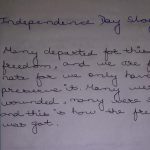 Independence Day Slog
Many departed for this
freedom, and we are f
hate for we only have
preserve it. Many we
wounded, many were s
and this is how the fre
was got.